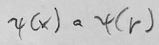 ψ(x) = ψ(r)